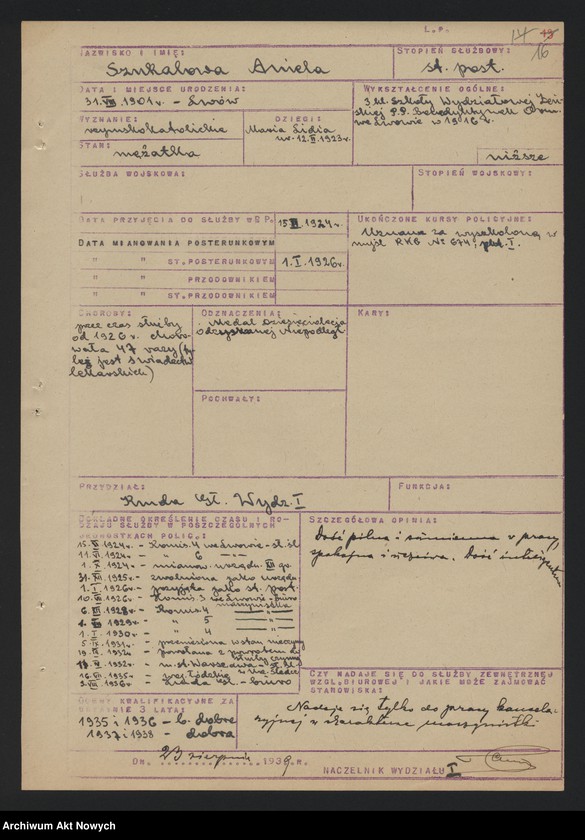 L.P.
16
NAZWISKO I IMIĘ:
Szukałowa Aniela
STOPIEŃ SŁUŻBOWY:
st. post.
DATA I MIEJSCE URODZENIA:
31.VIII.1901 r. - Lwów
WYKSZTAŁCENIE OGÓLNE:
3 kl. Szkoły Wydziałowej Żeń-
skiej P.P. Benedyktynek Orm.
we Lwowie w 1916 r.
niższe
WYZNANIE:
rzymskokatolickie
DZIECI:
Maria Lidia
ur. 12.II.1923 r.
STAN:
mężatka
SŁUŻBA WOJSKOWA:
STOPIEŃ WOJSKOWY:
DATA PRZYJĘCIA DO SŁUŻBY W P.P.
1924 r.
DATA MIANOWANIA POSTERUNKOWYM
" " ST.POSTERUNKOWYM
1.I.1926 r.
" " PRZODOWNIKIEM
" " ST.PRZODOWNIKIEM
UKOŃCZONE KURSY POLICYJNE:
Uznana za wyszkoloną w
myśl RKG Nr 674, pkt. I.
CHOROBY:
przez czas służby
od 1926 r. choro-
wała 47 razy
jest świadectw
lekarskich)
ODZNACZENIA:
Medal Dziesięciolecia
odzyskanej Niepodległ.
KARY:
POCHWAŁY:
PRZYDZIAŁ:
Kmda Gł. Wydz. I
FUNKCJA:
DOKŁADNE OKREŚLENIE CZASU I RO-
DZAJU SŁUŻBY W POSZCZEGÓLNYCH
JEDNOSTKACH POLIC.:
1924 r. - Komis. 4 we Lwowie - st. śl.
11.VI.1924 r. - " 6 " - "
1.X.1924 r. - mianow. urzędn. XII gr.
31.XII.1925 r. - zwolniona jako urzędn.
1.I.1926 r. - przyjęta jako st. post.
1926 r. - Komis. 3 we Lwowie - biuro
maszynistka
1928 r. - Komis. 4 " "
1929 r. - " 5 " "
1.I.1930 r. - " 4 " "
5.IX.1931 r. - przeniesiona w stan nieczynny
1932 r. - powołana z powrotem do
służby czynnej
1932 r. - m. st. Warszawa
1935 r. - Urz. Śledcz.
1936 r. - Kmda Gł. - biuro
SZCZEGÓŁOWA OPINIA:
Dość pilna i sumienna w pracy,
spokojna i uczciwa. Dość inteligentna
CZY NADAJE SIĘ DO SŁUŻBY ZEWNĘTRZNEJ
WZGL.BIUROWEJ I JAKIE MOŻE ZAJMOWAĆ
STANOWISKA:
Nadaje się tylko do pracy kancela-
ryjnej w charakterze maszynistki
OCENY KWALIFIKACYJNE ZA
OSTATNIE 3 LATA:
1935 i 1936 - b. dobre
1937 i 1938 - dobra
Dn. 23 sierpnia 1939 r.
NACZELNIK WYDZIAŁU I
Archiwum Akt Nowych